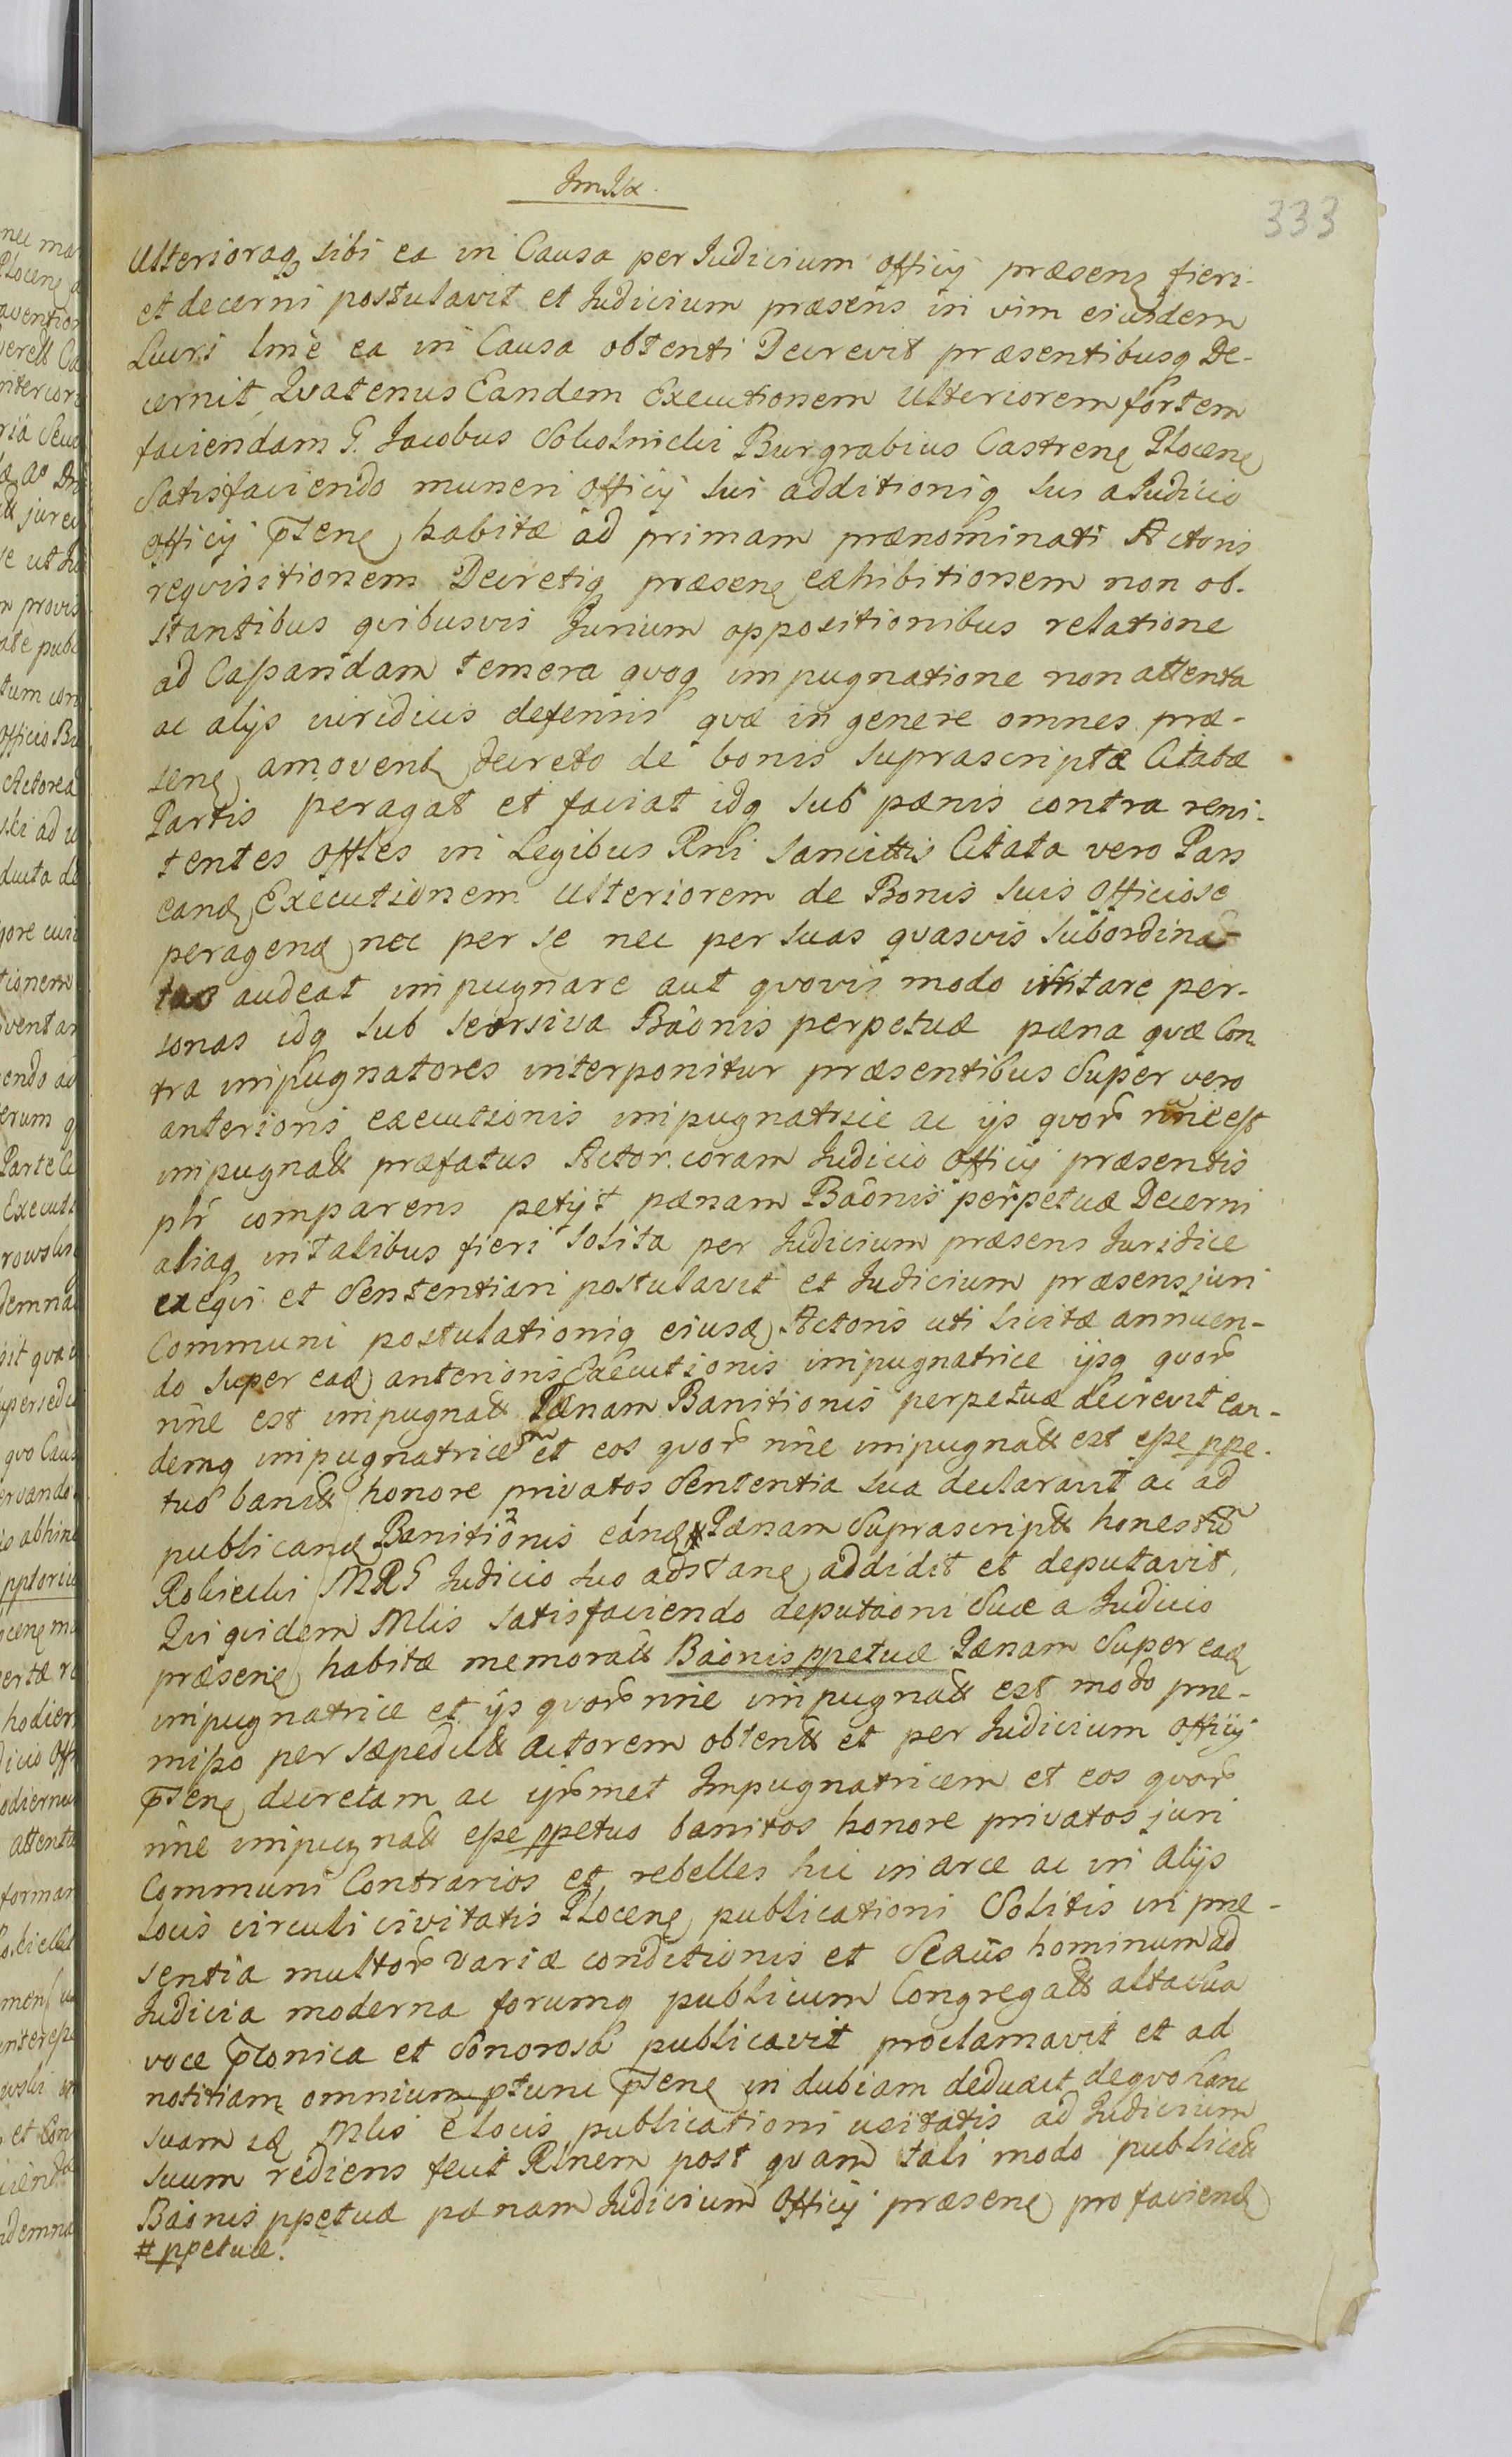 333
Ulterioraq sibi ea in Causa per Judicium officij præsens fieri
et decerni postulavit et Judicium præsens in vim eiusdem
Lucri lmê ea in Causa obtenti Decrevit præsentibusq De-
cernit Quatenus Eandem Executionem Ulteriorem fortem
faciendam G. Jacobus Sokolnicki Burgrabius Castren Plocen
Satisfaciendo muneri officij sui additioniq sui a Judicio
officij p̄sen habitæ ad primam prænominati Actoris
reqvisitionem Decretiq præsen exhibitionem non ob-
stantibus qvibusvis Jurium oppositionibus relatione
ad Cassandam temera qvoq impugnatione non attenta
ac alijs iuridicis defensis qvæ in genere omnes præ-
sen amovent decreto de bonis suprascriptæ Citatæ
Partis peragat et faciat idq sub pænis contra reni-
tentes offles in Legibus Rni sancittis Citata vero Pars
eand Executionem Ulteriorem de Bonis suis Officiose
peragend nec per se nec per suas qvasvis subordina-
tas audeat impugnare aut qvovis modo irritare per-
sonas idq sub seorsiva Bâonis perpetuæ pæna qvæ Con
tra impugnatores interponitur præsentibus Super vero
anterioris executionis impugnatrice ac ijs qvor nñe est
impugnatt præfatus Actor coram Judicio officij præsentis
plr comparens petijt pænam Bâonis perpetuæ Decerni
aliaq in talibus fieri solita per Judicium præsens Juridice
exeqvi et Sententiari postulavit et Judicium præsens juri
Communi postulationiq eiusd Actoris uti licitæ annuen-
do super ead anterioris Executionis impugnatrice ijsq qvor
nñe est impugnatt Pænam Banitionis perpetuæ decrevit ean-
demq impugnatricem et eos qvor nñe impugnatt est esse ppe-
tuo banitt honore privatos Sententia sua declaravit ac ad
publicand Banitionis eand # Pænam Suprascriptt honestum
Rokicki MRG Judicio suo adstan addidit et deputavit,
Qui qvidem Mlis satisfaciendo deputaoni Suæ a Judicio
præsen habitæ memoratt Bâonis ppetuæ Pænam Super ead
impugnatrice et ijs qvor nñe impugnatt est modo præ-
misso per sæpedictt Actorem obtentt et per Judicium officij
p̄sen decretam ac ipmet Impugnatricem et eos qvor
nñe impugnatt esse ppetuo banitos honore privatos juri
Communi Contrarios et rebelles hic in arce ac in alijs
locis circuli civitatis Plocen publicationi Solitis in præ-
sentia multor variæ conditionis et Sexus hominum ad
Judicia moderna forumq publicum Congregatt alta sua
voce p̄conica et Sonorosa publicavit proclamavit et ad
notitiam omnium ptunc p̄sen in dubiam deduxit de qvo hanc
suam id Mlis e locis publicationi usitatis ad Judicium
suum rediens fecit Rlnem post qvam tali modo publicatt
Bâonis ppetuæ pænam Judicium officij præsen pro faciend
# ppetuæ.